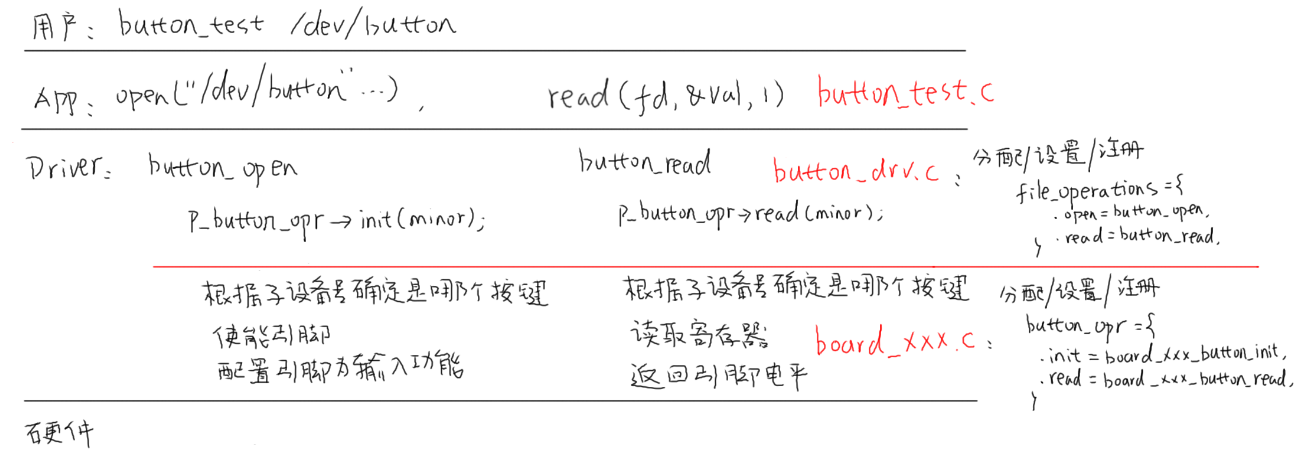 用户： button_test /dev/button
App： open("/dev/button"...) , read(fd, &val, 1) button_test.c
Driver： button_open button_read button_drv.c：
p_button_opr→init(minor); p_button_opr→read(minor);
分配/设置/注册
file_operations={
.open=button_open,
.read=button_read,
}
根据子设备号确定是哪个按键
使能引脚
配置引脚为输入功能
根据子设备号确定是哪个按键
读取寄存器
返回引脚电平
board_xxx.c：
分配/设置/注册
button_opr={
.init=board_xxx_button_init,
.read=board_xxx_button_read,
}
硬件